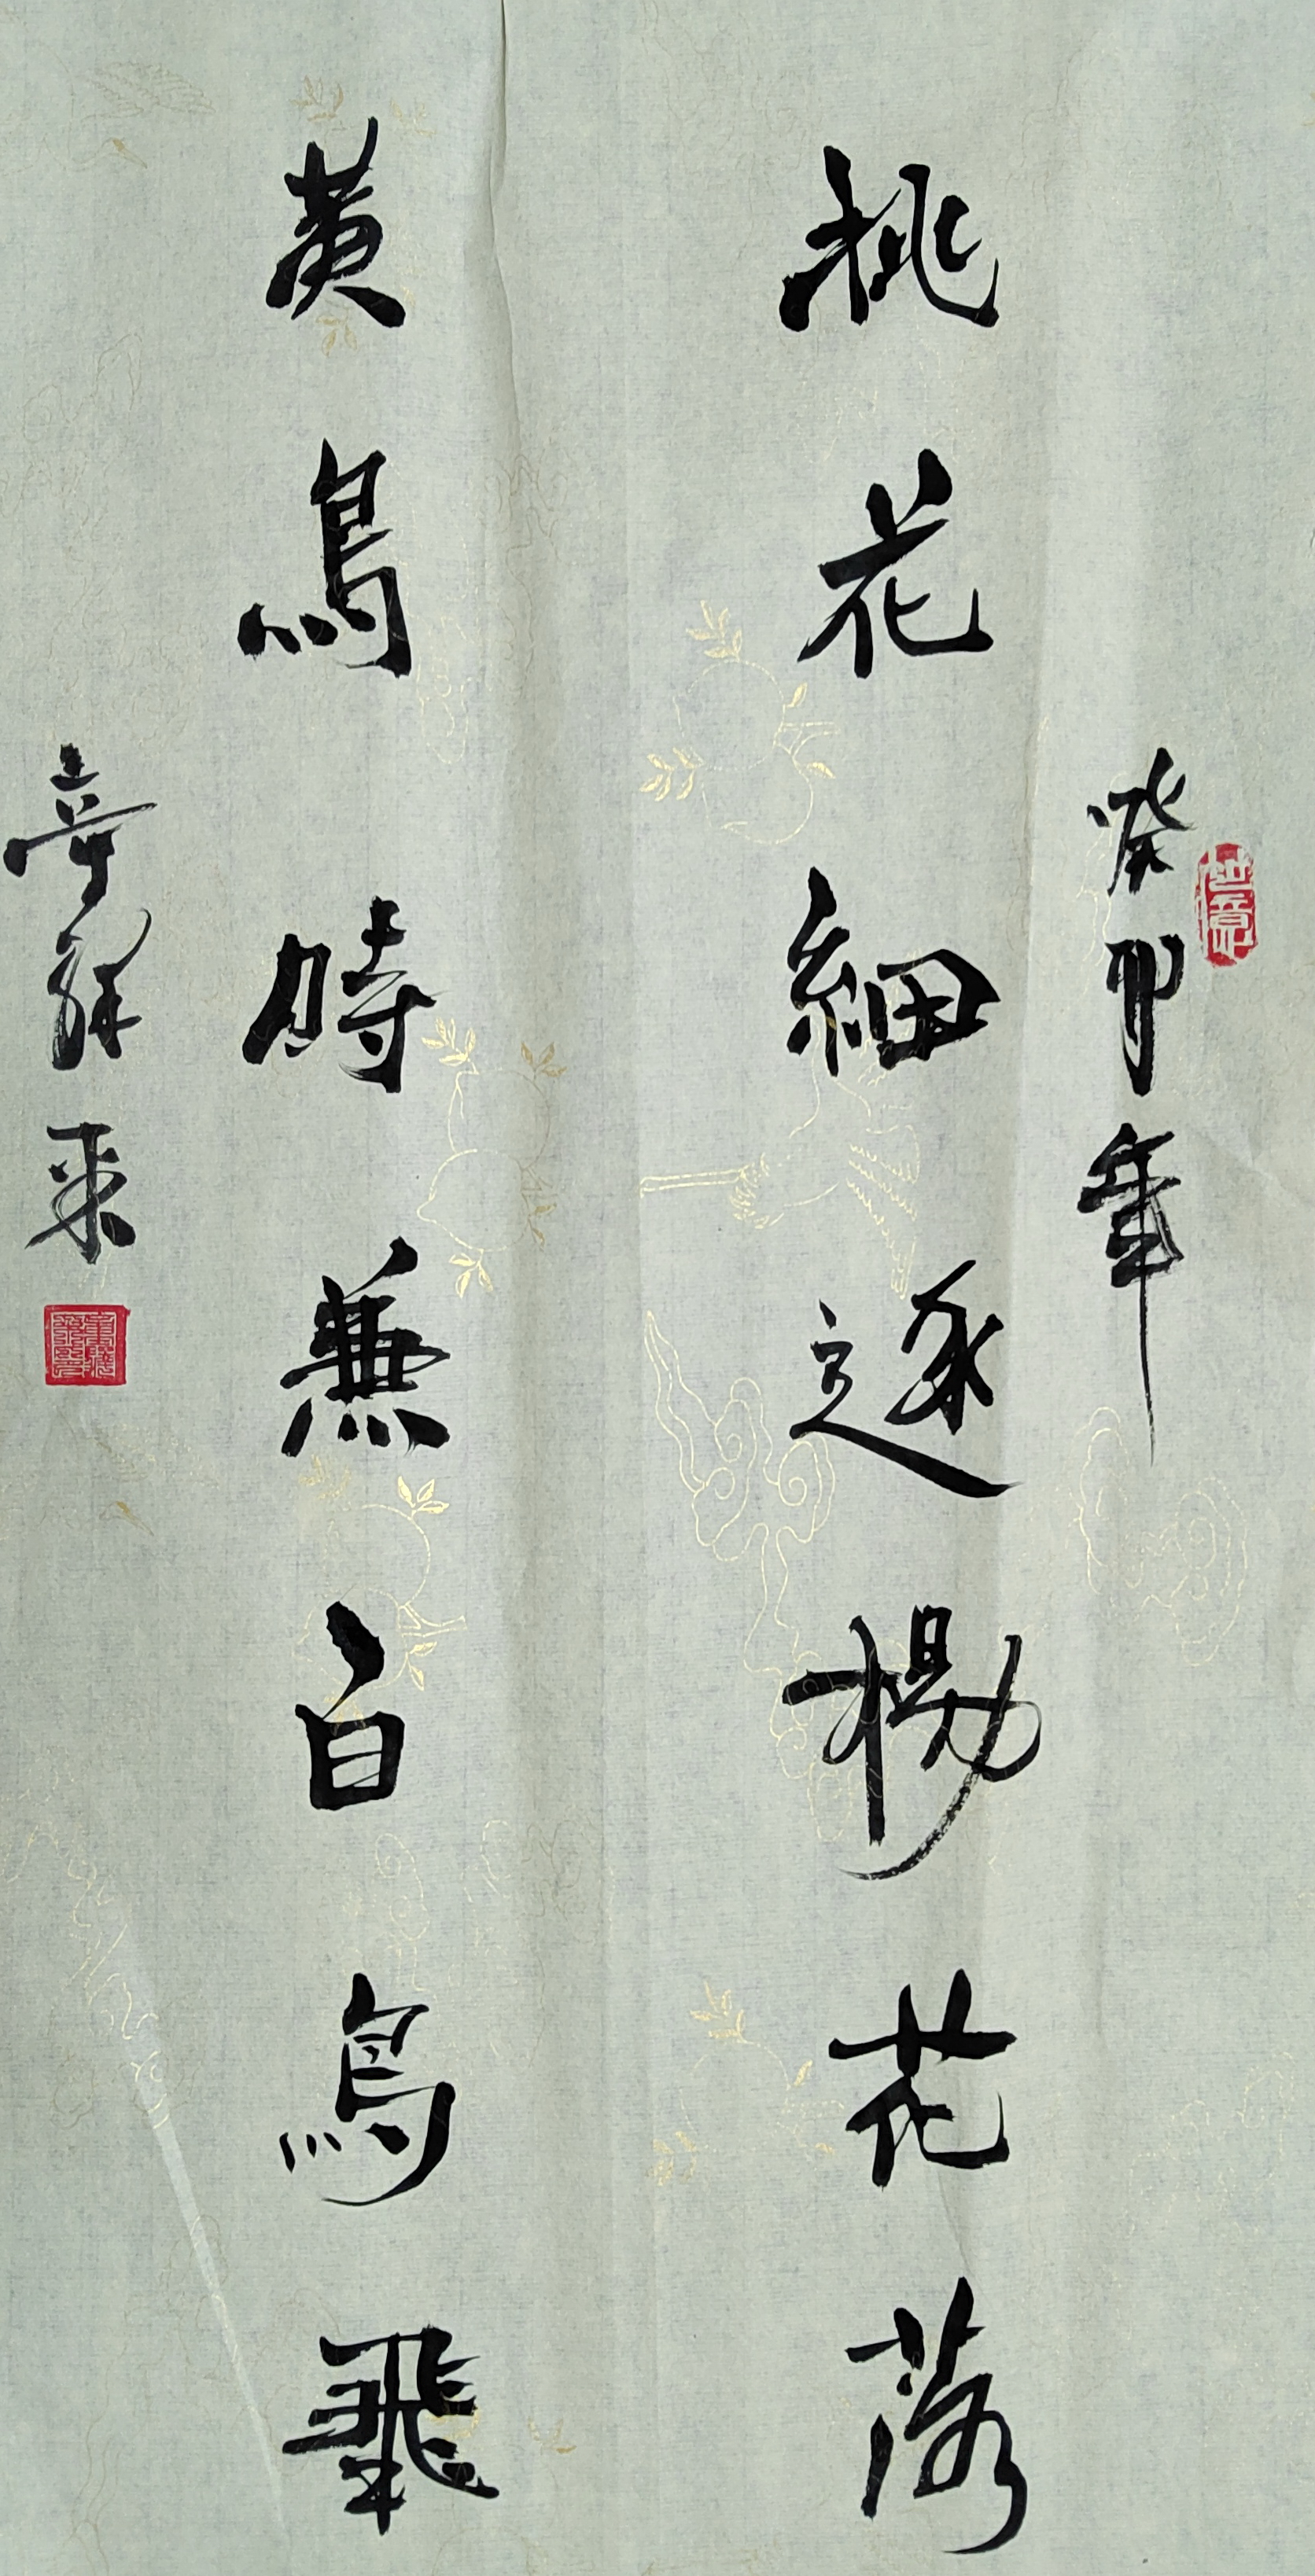 癸卯年
桃花細逐楊花落
黃鳥時兼白鳥飛